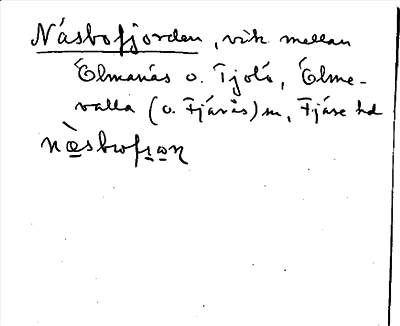 Näsbofjorden, vik mellan
Ölmanäs o. Tjolö, Ölme-
valla (o. Fjärås) sn, Fjäre hd
nä̀sbofιαn